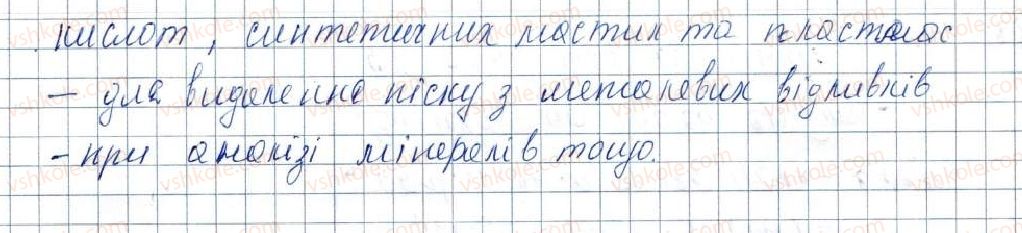 кислот, синтетичних мастил та пластмас
– для видалення піску з металевих відливків
- при аналізі мінералів тощо.